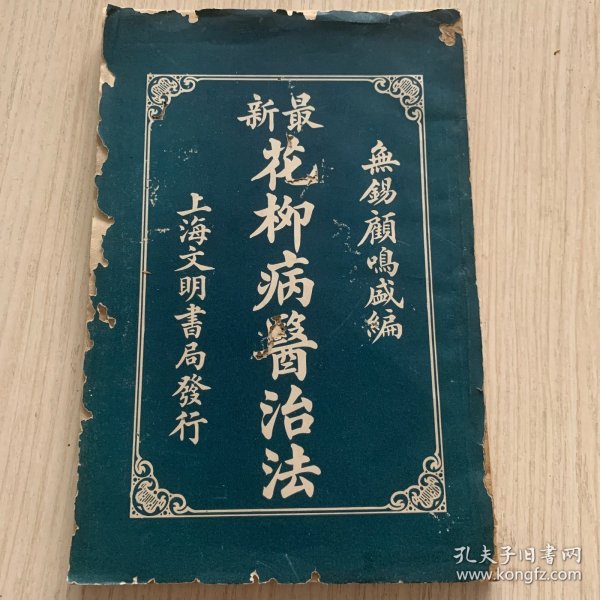 無錫顧鳴盛編
最新
花柳病醫治法
上海文明書局發行
孔夫子旧书网
www.kongfz.com